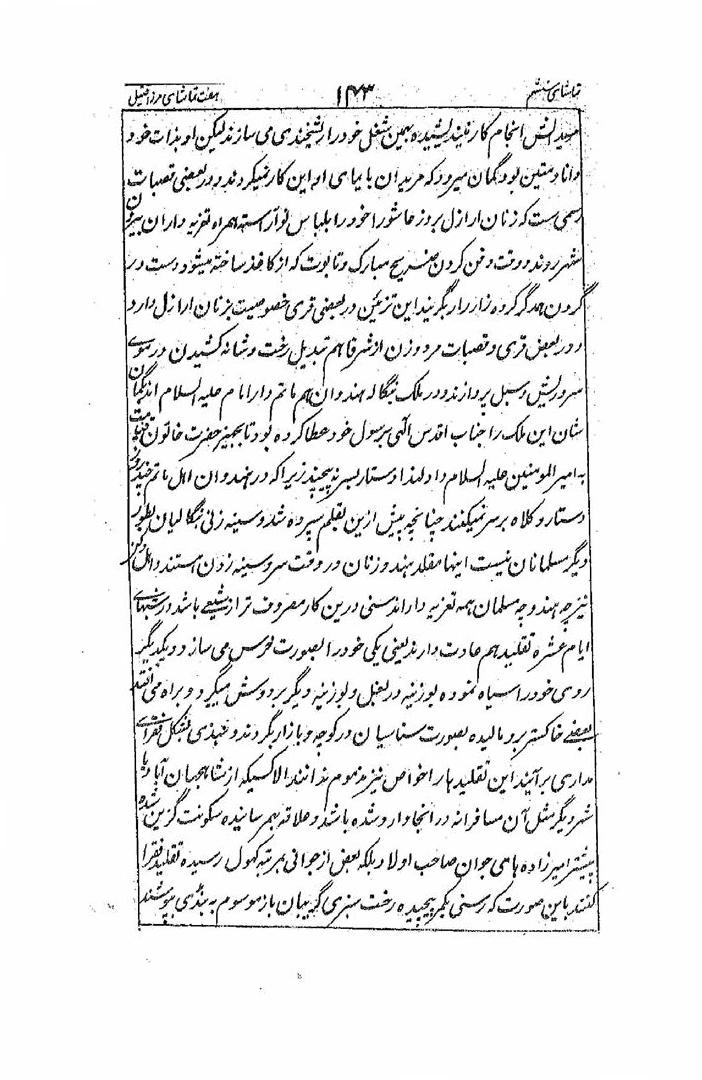 تماشای ششم ۱۴۳ هفت تماشای مرزا قتیل
انجام کار نیندیشیده بهمین شغل خود را ریشخندی می سازند لیکن او بذات خود
دانا و متین بود گمان میرود که مریدان با یمای او این کار نمیکردند و در بعضی قصبات
رسمی ست که زنان ارازل بروز عاشورا خود را بلباس نو آراسته همراه تعزیه داران بیرون
شهر روند و وقت دفن کردن ضریح مبارک و تابوت که از کاغذ ساخته میشود دست در
گردن همدگر کرده زار زار بگریند این تزئین در بعضی قری خصوصیت بزنان ارازل دارد
و در بعض قری و قصبات مرد و زن از شرفا هم تبدیل رخت و شانه کشیدن در موی
سر و ریش و سبل پردازند و در ملک بنگاله هندوان هم ماتم دار امام علیه السلام اند
این ملک را جناب اقدس الهی برسول خود عطا کرده بود تا بجهیز حضرت خاتون قیامت
به امیر المومنین علیه السلام داد لهذا دستار بسر نه پیچند زیرا که در هندوان اهل ماتم چند روز
دستار و کلاه بر سر نمیکنند چنانچه پیش ازین بقلم سپرده شد و سینه زنی بنگالیان بطور
دیگر مسلمانان نیست اینها مقلد هندو زنان در وقت سر و سینه زدن هستند و اهل دکن
نیز چه هندو چه مسلمان همه تعزیه دار اند سنی درین کار مصروف تر از شیعی باشد در شبهای
ایام عشره تقلید هم عادت دارند یعنی یکی خود را بصورت خرس می سازد و دیگر
روی خود را سیاه نموده بوزنیه در بغل و بوزنیه دیگر بر دوش میگیرد و براه می افتد
بعضے خاکستر برو مالیده بصورت سناسیان در کوچه و بازار بگردند و بشکل فقرای
مداری برآیند این تقلید ها را خواص نیز مذموم ندانند الا کسیکه از شاهجهان آباد یا
شهر دیگر مثل آن مسافرانه در انجا وارد شده باشد و علاقه بهم رسانیده سکونت گزین شده
بیشتر امیرزاده های جوان صاحب اولاد بلکه بعض از جوانی بمرتبه کهول رسیده تقلید فقرا
کنند باین صورت که رسنی بکمر پیچیده رخت سبزی گریبان باز موسوم به بنڈی بپوشند